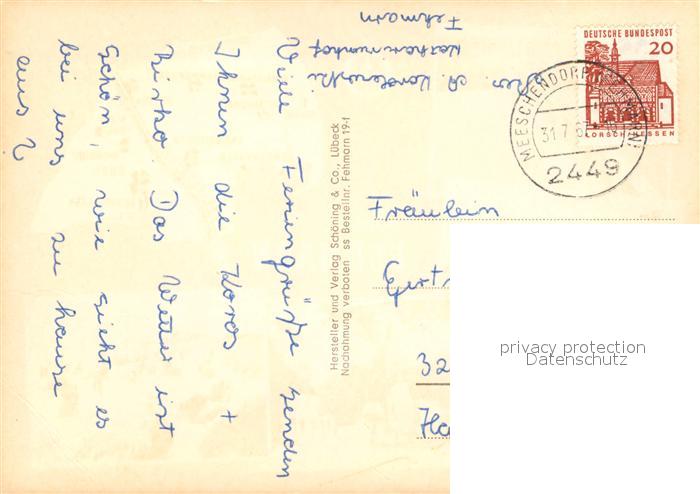 Fehmarn
Viele Feriengrüße senden
Ihnen die Koros +
Birko. Das Wetter ist
schön, wie sieht es
bei uns zu hause
aus?
Hersteller und Verlag Schöning & Co., Lübeck
Nachahmung verboten ss Bestellnr. Fehmarn 19-f
DEUTSCHE BUNDESPOST
20
LORSCH HESSEN
MEESCHENDORF
31.7.6
2449
Fräulein
Gert
32
Ha
privacy protection
Datenschutz